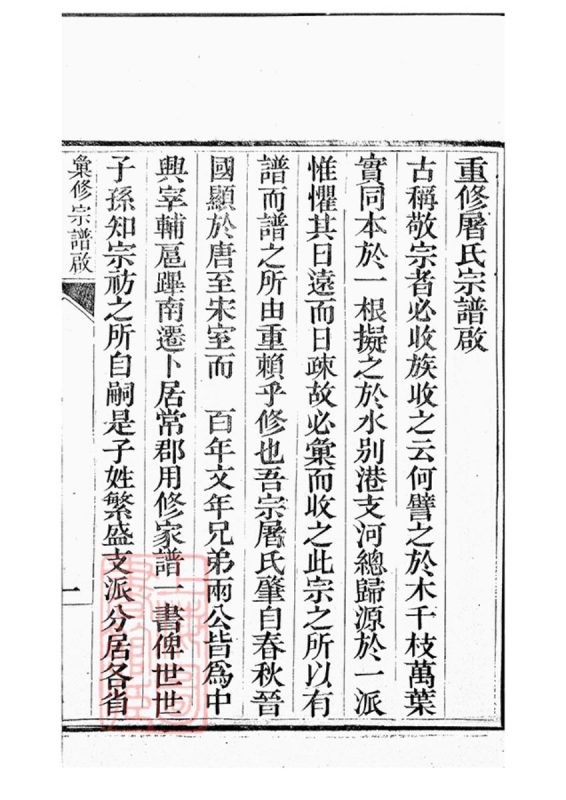 重修屠氏宗譜啟
古稱敬宗者必收族收之云何譬之於木千枝萬葉
實同本於一根擬之於水別港支河總歸源於一派
惟懼其日遠而日疎故必彙而收之此宗之所以有
譜而譜之所由重賴乎修也吾宗屠氏肇自春秋晉
國顯於唐至宋室而　百年文年兄弟兩公皆為中
興宰輔扈蹕南遷卜居常郡用修家譜一書俾世世
子孫知宗祊之所自嗣是子姓繁盛支派分居各省
彙修宗譜啟
一